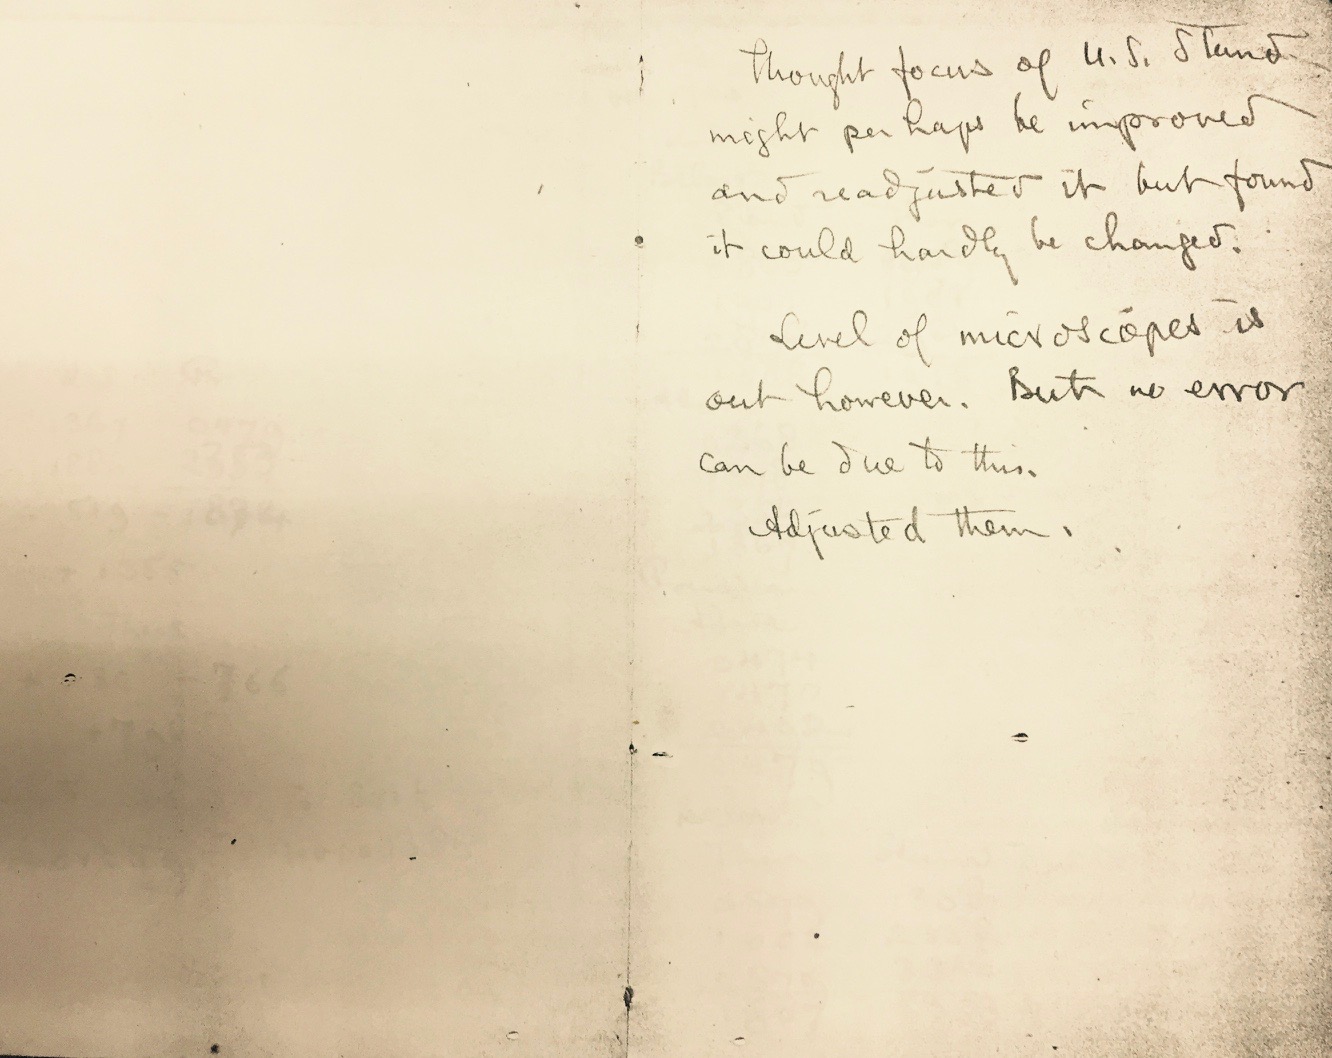 Thought focus of U.S. Stand
might perhaps be improved
and readjusted it but found
it could hardly be changed.
Level of microscopes is
out however. But no error
can be due to this.
Adjusted them.